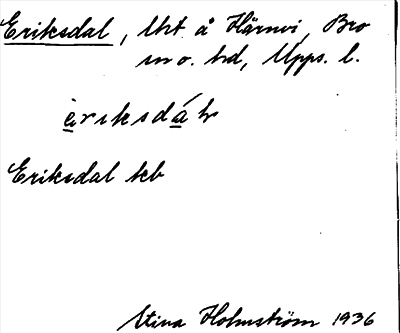 Eriksdal, lht å Härnevi, Bro
sn o. hd, Upps. l.
èriksdá lr
Eriksdal kb
Stina Holmström 1936